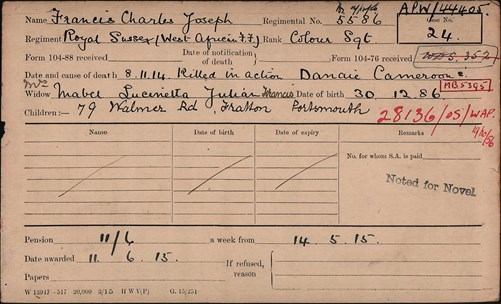 m 4/11/16 APW/44405.
Name Francis Charles Joseph Regimental No. 5586 Case No.
Regiment Royal Sussex (West African F.F) Rank Colour Sgt 24.
Form 104-88 received Date of notification of death Form 104-76 received
Date and cause of death 8.11.14. Killed in action Danaie Cameroons
Widow Mrs Mabel Lucinetta Julian Francis Date of birth 30.12.86. MB5395
Children:— 79 Walmer Rd, Fratton Portsmouth 28136/OS/WAP.
19/10/56
Name Date of birth Date of expiry Remarks
No. for whom S.A. is paid
Noted for Novel
Pension 11/6 a week from 14.5.15.
Date awarded 11.6.15. If refused, reason
Papers
W 13947—517 20,000 3/15 H W V(P) G. 15/251